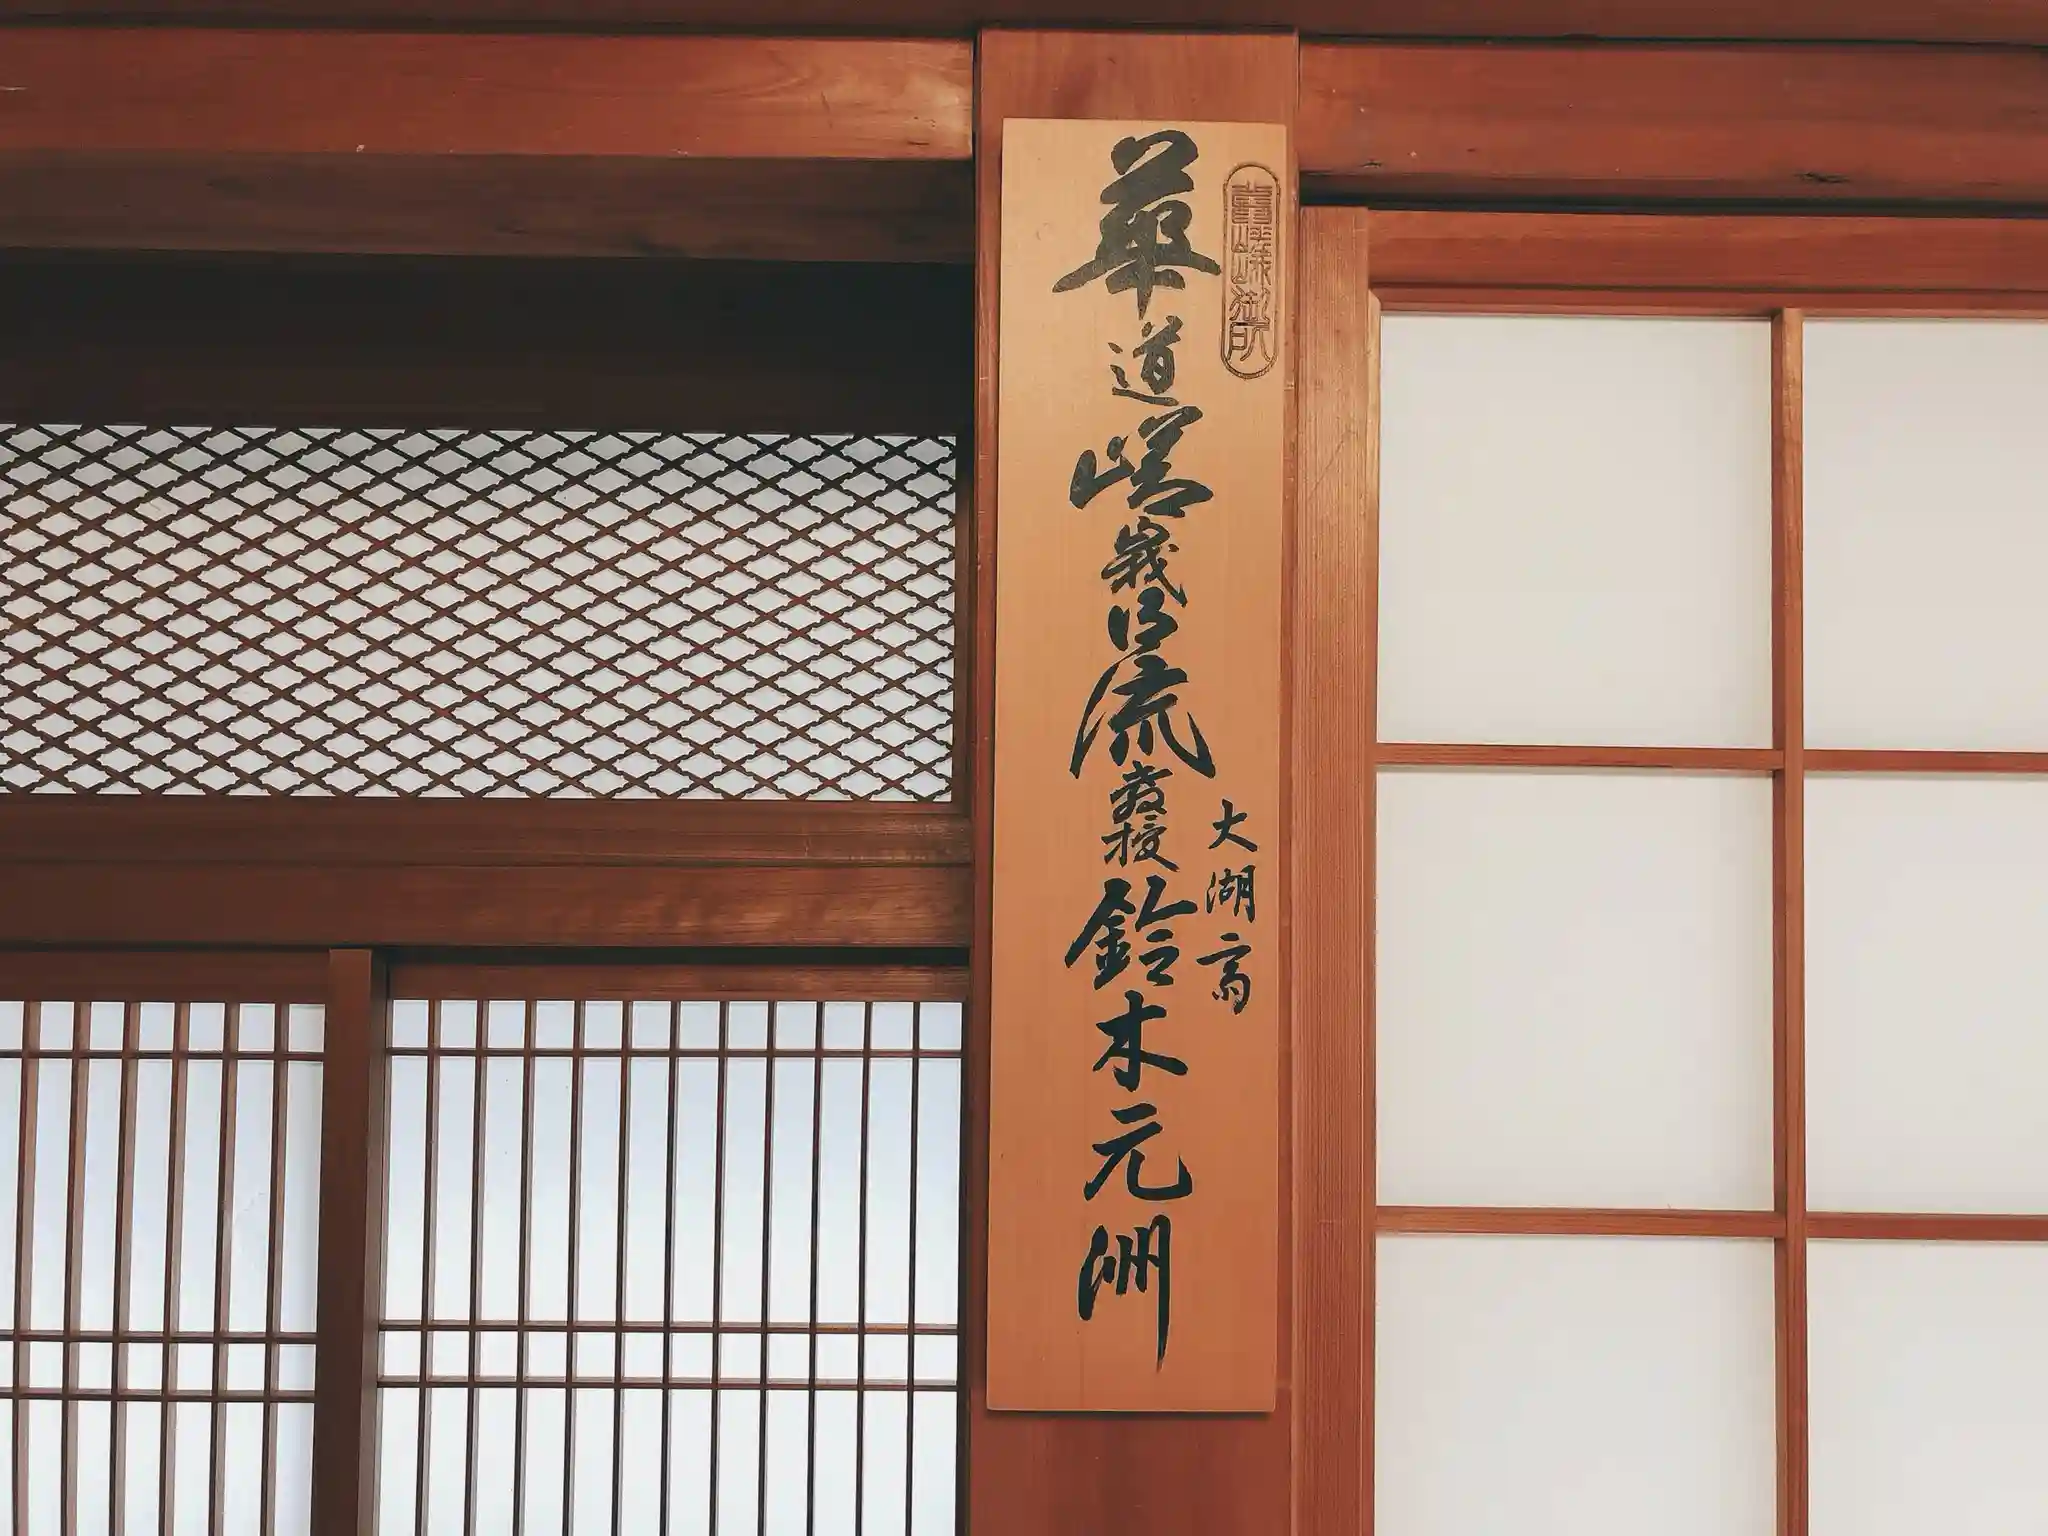 舊嵯峨御所
華道嵯峨御流教授
大湖斎
鈴木元洲